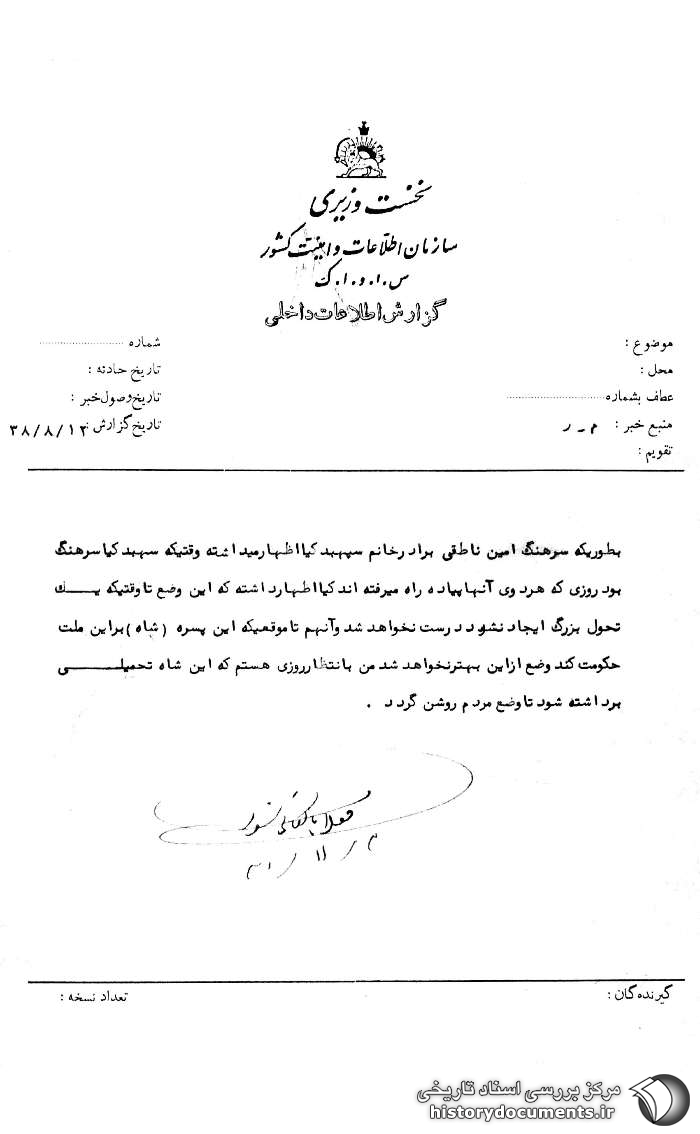 نخست وزیری
سازمان اطلاعات و امنیت کشور
س.ا.و.ا.ک
گزارش اطلاعات داخلی
موضوع :
محل :
عطف بشماره
منبع خبر : م - ر
تقویم :
شماره
تاریخ حادثه :
تاریخ وصول خبر :
تاریخ گزارش : ۳۸/۸/۱۲
بطوریکه سرهنگ امین ناطقی برادر خانم سپهبد کیا اظهار میداشته وقتیکه سپهبد کیا سرهنگ
بود روزی که هر دوی آنها پیاده راه میرفته اند کیا اظهار داشته که این وضع تا وقتیکه یک
تحول بزرگ ایجاد نشود درست نخواهد شد و آنهم تا موقعیکه این پسره (شاه) براین ملت
حکومت کند وضع از این بهتر نخواهد شد من بانتظار روزی هستم که این شاه تحمیلی
برداشته شود تا وضع مردم روشن گردد .
گیرندگان :
تعداد نسخه :
مرکز بررسی اسناد تاریخی
historydocuments.ir